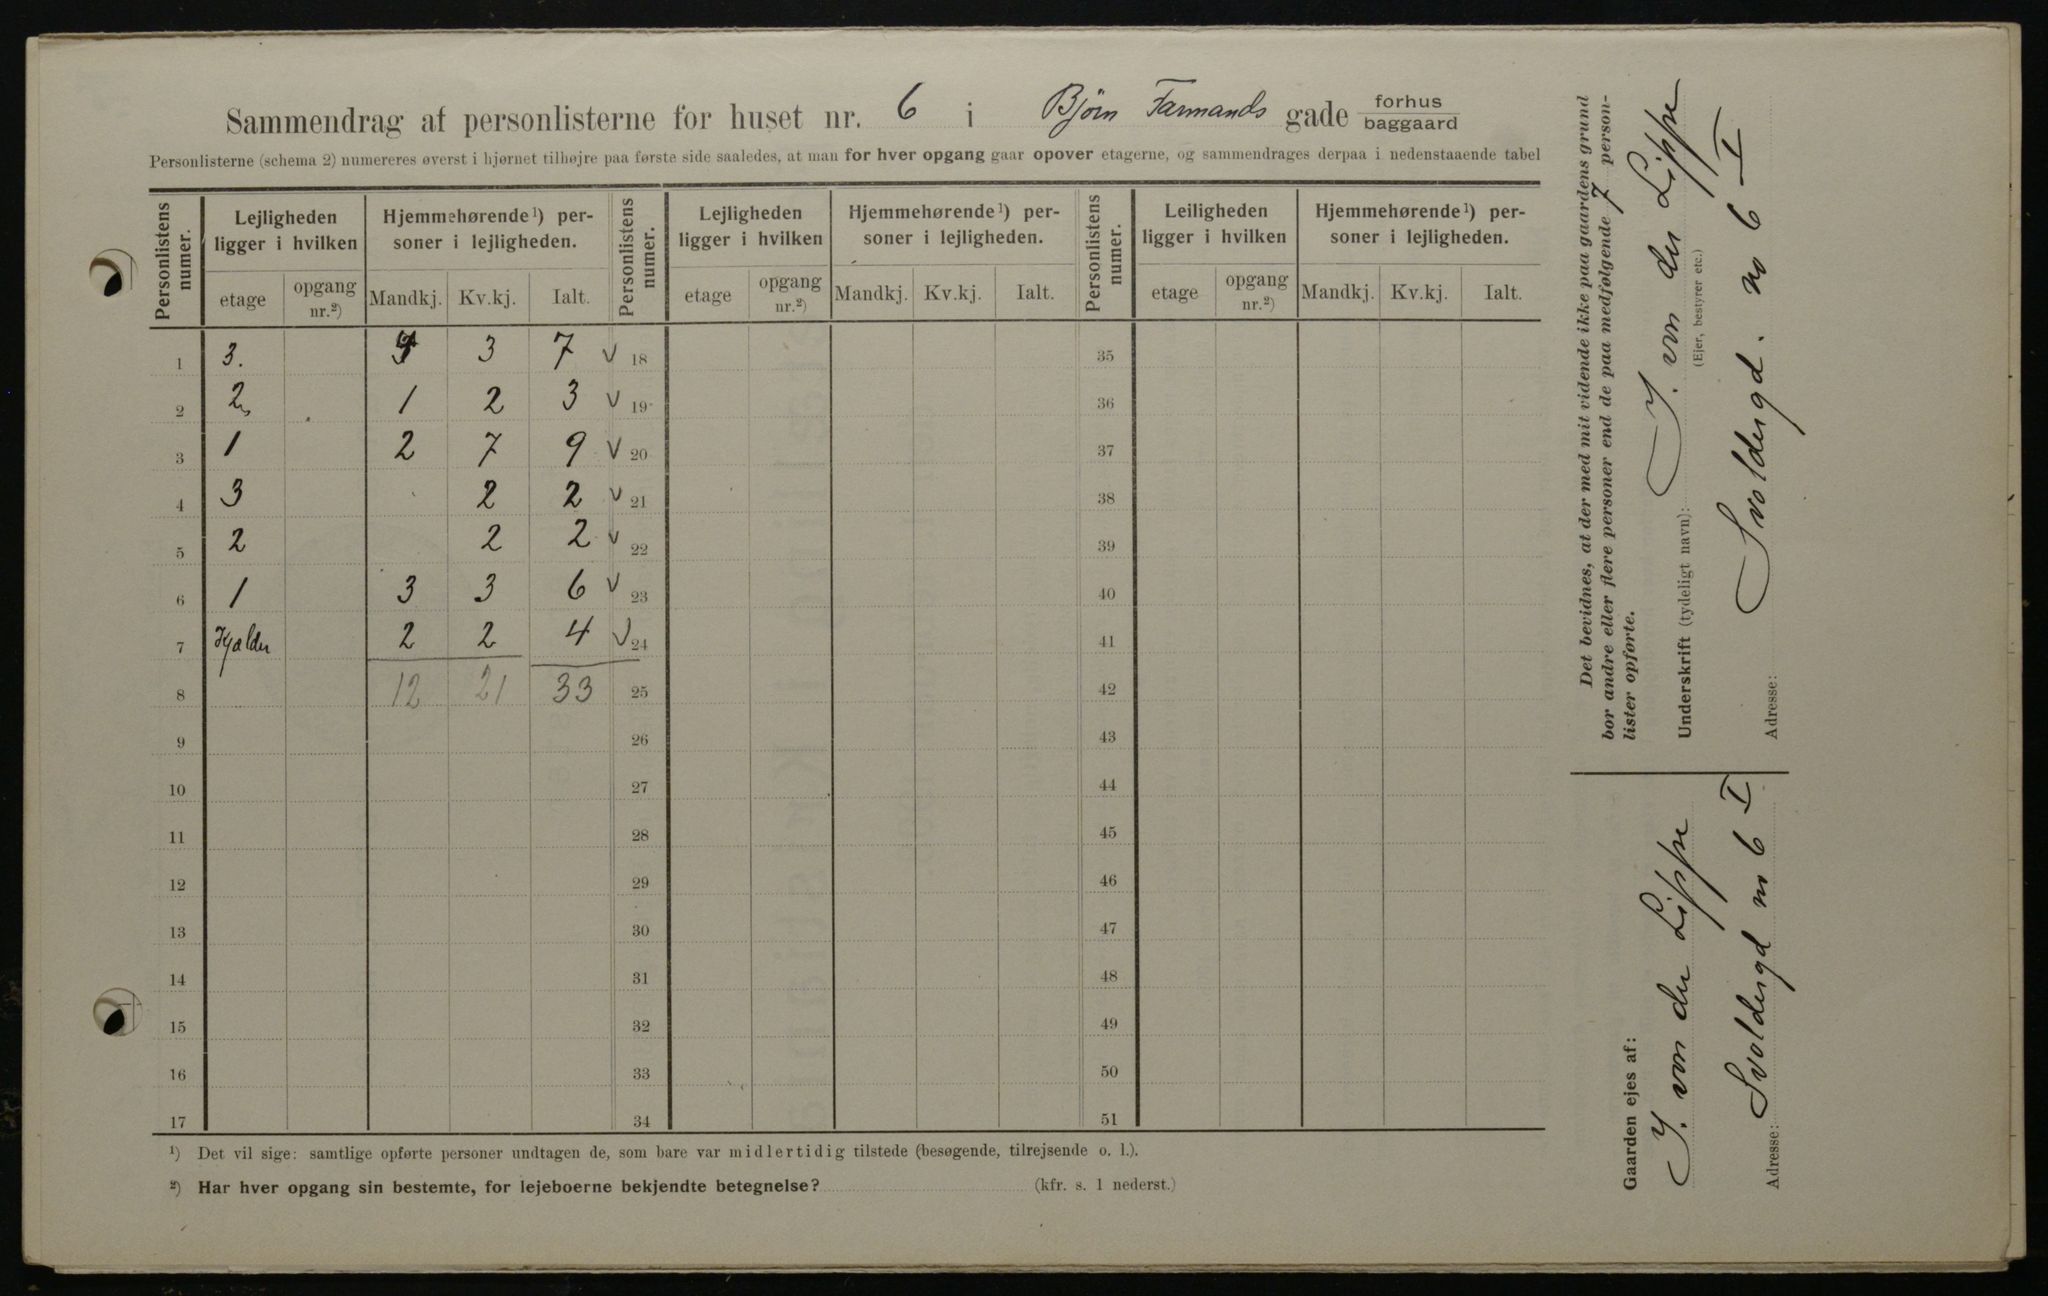 Sammendrag af personlisterne for huset nr. 6 i Bjørn Farmands gade forhus baggaard
Personlisterne (schema 2) numereres øverst i hjørnet tilhøjre paa første side saaledes, at man for hver opgang gaar opover etagerne, og sammendrages derpaa i nedenstaaende tabel
Personlistens numer. Lejligheden ligger i hvilken Hjemmehørende¹) personer i lejligheden. Personlistens numer. Lejligheden ligger i hvilken Hjemmehørende¹) personer i lejligheden. Personlistens numer. Leiligheden ligger i hvilken Hjemmehørende¹) personer i lejligheden.
etage opgang nr.²) Mandkj. Kv.kj. Ialt. etage opgang nr.²) Mandkj. Kv.kj. Ialt. etage opgang nr.²) Mandkj. Kv.kj. Ialt.
1 3. 3 7 v 18 35
2 2 1 2 3 v 19 36
3 1 2 7 9 v 20 37
4 3 2 2 v 21 38
5 2 2 2 v 22 39
6 1 3 3 6 v 23 40
7 Kjælder 2 2 4 v 24 41
8 12 21 33 25 42
9 26 43
10 27 44
11 28 45
12 29 46
13 30 47
14 31 48
15 32 49
16 33 50
17 34 51
¹) Det vil sige: samtlige opførte personer undtagen de, som bare var midlertidig tilstede (besøgende, tilrejsende o. l.).
²) Har hver opgang sin bestemte, for lejeboerne bekjendte betegnelse? (kfr. s. 1 nederst.)
Det bevidnes, at der med mit vidende ikke paa gaardens grund
bor andre eller flere personer end de paa medfølgende 7 person-
lister opførte.
Underskrift (tydeligt navn): J. von der Lippe
(Ejer, bestyrer etc.)
Adresse: Svoldergd. no 6 I
Gaarden ejes af:
J. von der Lippe
Adresse: Svoldergd no 6 I